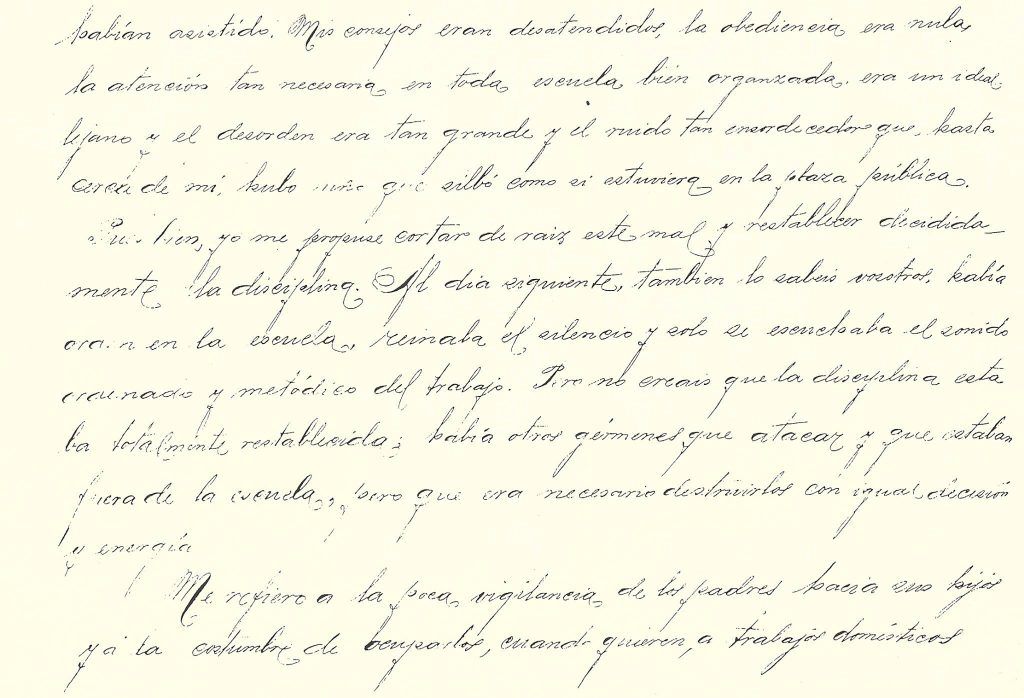 habían asistido. Mis consejos eran desatendidos, la obediencia era nula,
la atención tan necesaria en toda escuela bien organizada, era un ideal
lejano y el desorden era tan grande y el ruido tan ensordecedor que, hasta
cerca de mí, hubo niño que silbó como si estuviera en la plaza pública.
Pues bien, yo me propuse cortar de raiz este mal y restablecer decidida-
mente la disciplina. Al dia siguiente, tambien lo sabeis vosotros, había
orden en la escuela, reinaba el silencio y solo se escuchaba el sonido
ordenado y metódico del trabajo. Pero no creais que la disciplina esta
ba totalmente restablecida; había otros gérmenes que atacar y que estaban
fuera de la escuela, pero que era necesario destruirlos con igual decisión
y energía
Me refiero a la poca vigilancia de los padres hacia sus hijos
y á la costumbre de ocuparlos, cuando quieren, a trabajos domésticos